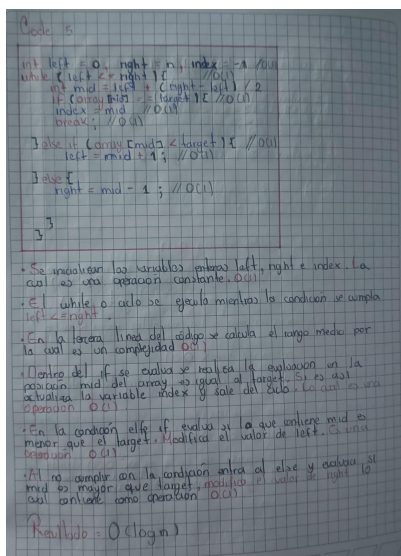 Code 5
int left = 0, right = n, index = -1 //O(1)
while (left <= right) { //O(1)
int mid = left + (right - left) / 2
if (array[mid] == target) { //O(1)
index = mid //O(1)
break; //O(1)
} else if (array [mid] < target) { //O(1)
left = mid + 1; //O(1)
} else {
right = mid - 1; //O(1)
}
}
• Se inicializan las variables enteras left, right e index. La
cual es una operación constante. O(1)
• El while o ciclo se ejecuta mientras la condición se cumpla
left <= right.
• En la tercera linea del código se calcula el rango medio por
la cual es un complejidad O(1)
• Dentro del if se evalua se realiza la evaluación en la
posición mid del array es igual al target. Si es así
actualiza la variable index y sale del ciclo. Lo cual es una
operación O(1)
• En la condición else if evalua si lo que contiene mid es
menor que el target. Modifica el valor de left. Es una
operación O(1)
• Al no cumplir con la condición entra al else y evalua si
mid es mayor que target, modifica el valor de right lo
cual contiene como operación O(1)
Resultado = O(log n)